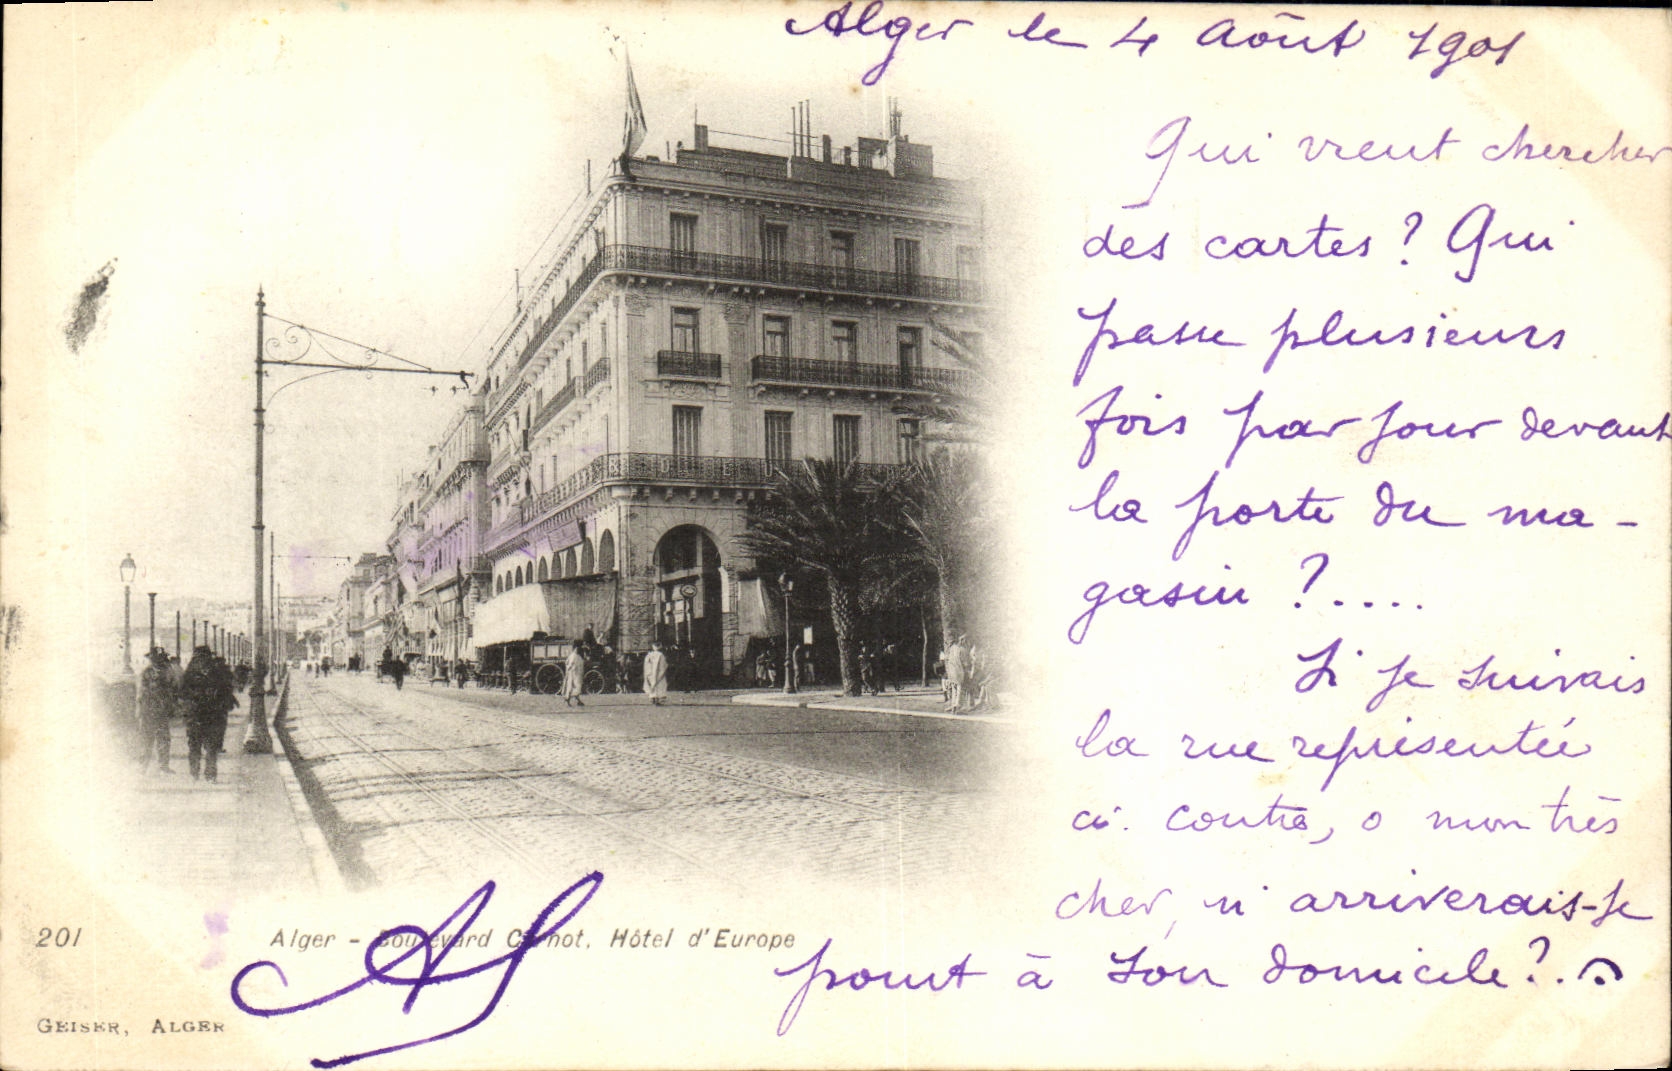 Alger le 4 Août 1901
Qui vient chercher
des cartes ? Qui
passe plusieurs
fois par jour devant
la porte du ma-
gasin ?.....
Si je suivais
la rue représentée
ci. contre, o mon très
cher, n' arriverais-je
point à son domicile ?.
201
Alger - Boulevard Carnot. Hôtel d'Europe
GEISER, ALGER